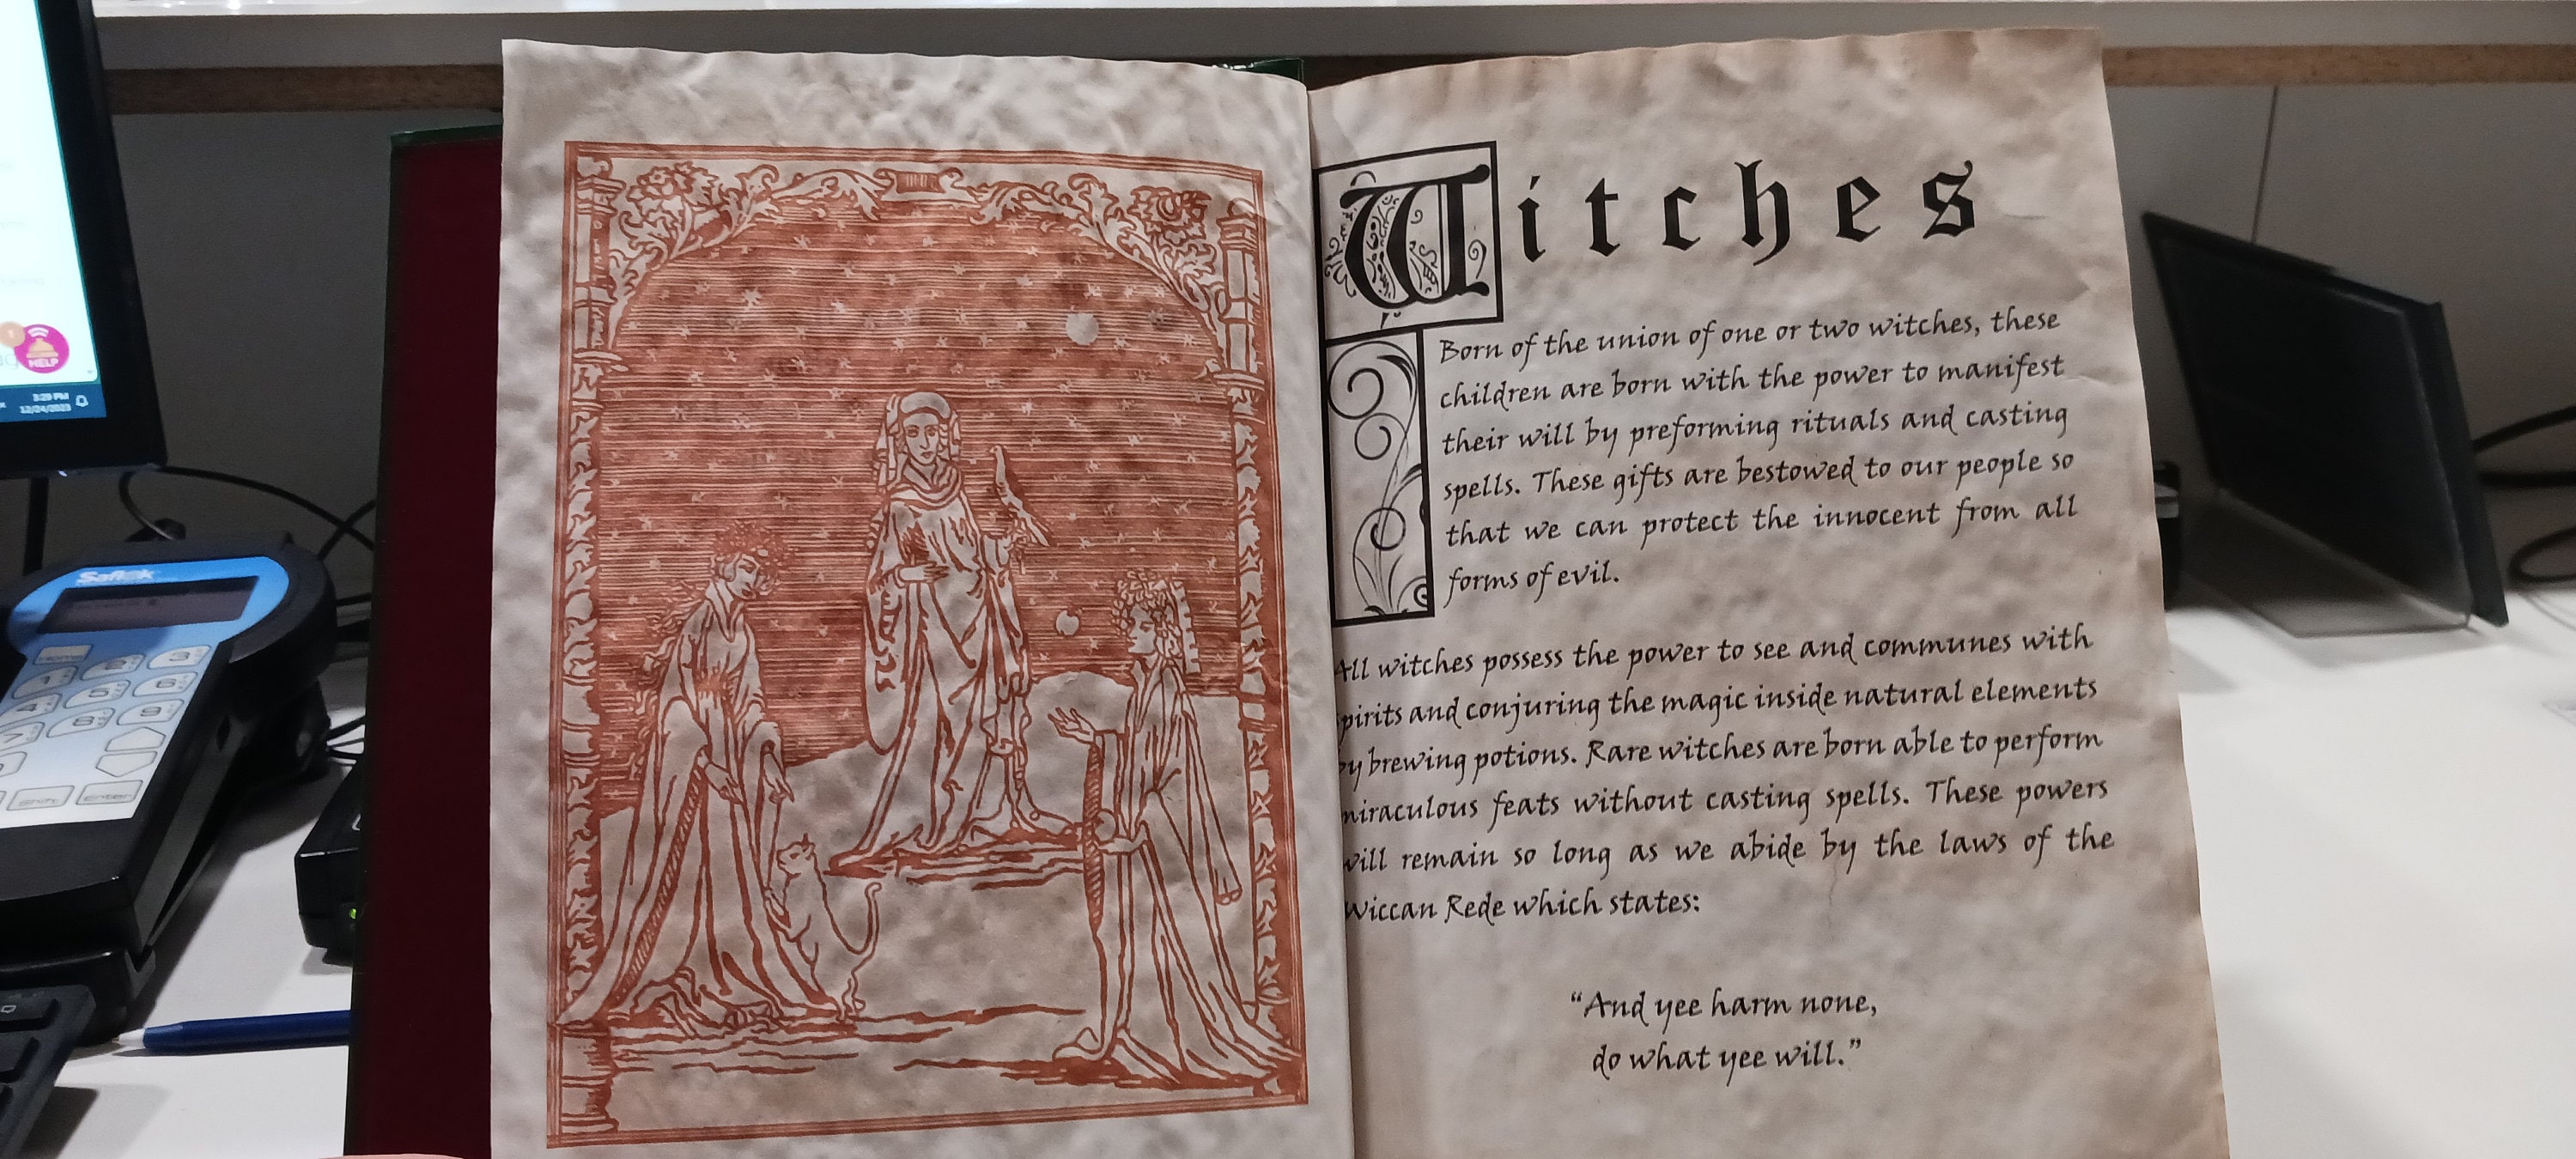 HELP
3:29 PM
12/24/2023
Saflok
Witches
Born of the union of one or two witches, these
children are born with the power to manifest
their will by preforming rituals and casting
spells. These gifts are bestowed to our people so
that we can protect the innocent from all
forms of evil.
All witches possess the power to see and communes with
pirits and conjuring the magic inside natural elements
by brewing potions. Rare witches are born able to perform
miraculous feats without casting spells. These powers
will remain so long as we abide by the laws of the
Wiccan Rede which states:
“And yee harm none,
do what yee will.”